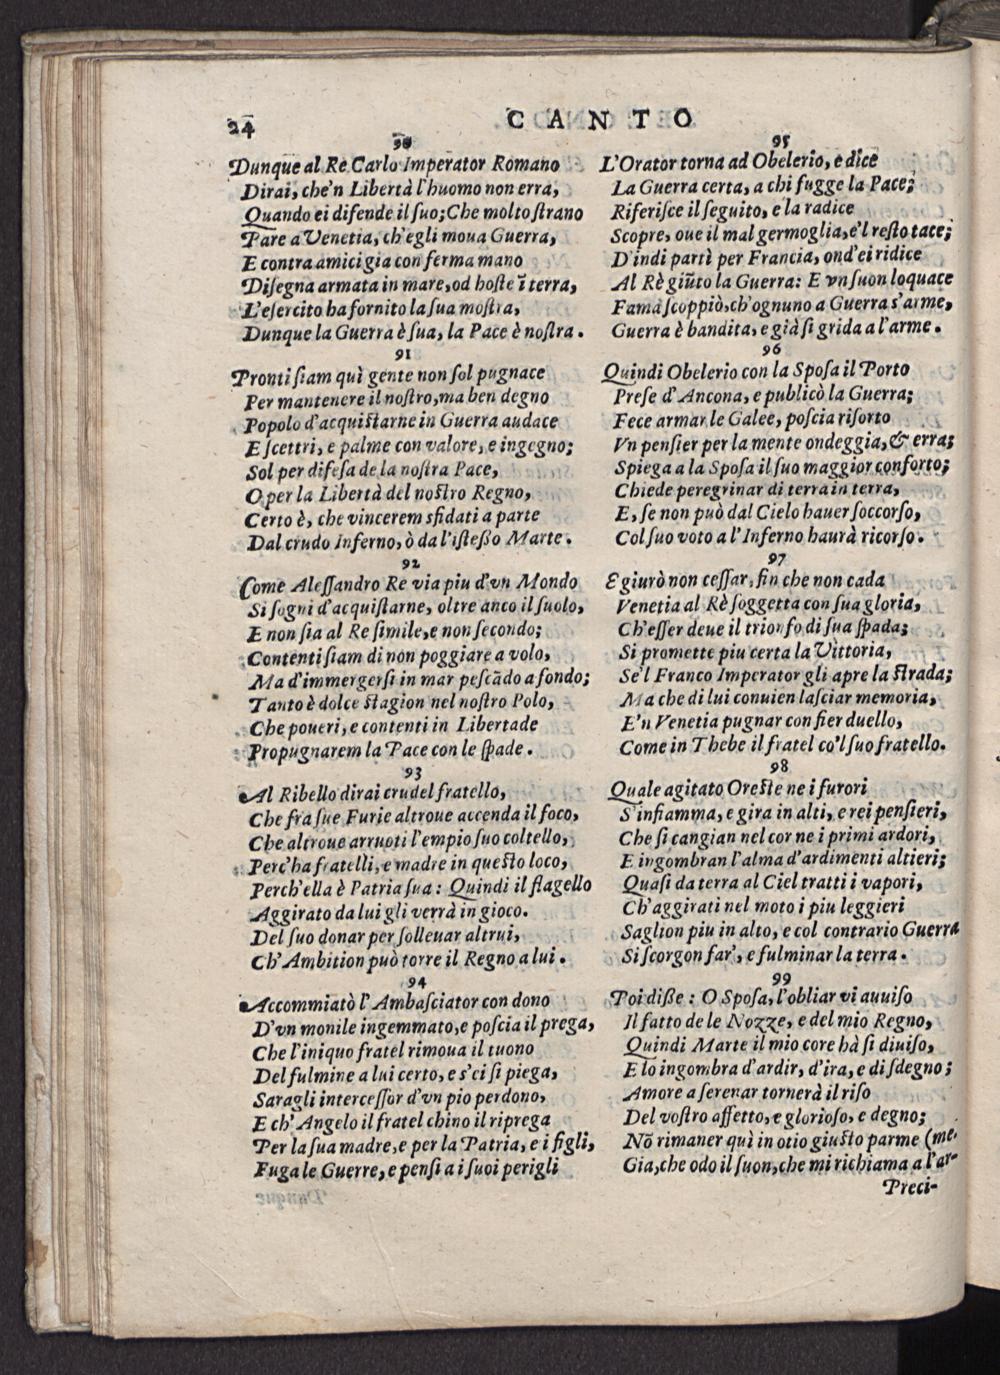 24
CANTO
90
Dunque al Re Carlo Imperator Romano
Dirai, che'n Libertà l'huomo non erra,
Quando ei difende il ſuo; Che molto ſtrano
Pare a Venetia, ch'egli moua Guerra,
E contra amici gia con ferma mano
Diſegna armata in mare, od hoſte ĩ terra,
L'eſercito ha fornito la ſua moſtra,
Dunque la Guerra è ſua, la Pace è noſtra.
91
Pronti ſiam quì gente non ſol pugnace
Per mantenere il noſtro, ma ben degno
Popolo d'acquiſtarne in Guerra audace
E ſcettri, e palme con valore, e ingegno;
Sol per difeſa de la noſtra Pace,
O per la Libertà del noſtro Regno,
Certo è, che vincerem sfidati a parte
Dal crudo Inferno, ò da l'iſteßo Marte.
92
Come Aleſſandro Re via piu d'vn Mondo
Si ſogni d'acquiſtarne, oltre anco il ſuolo,
E non ſia al Re ſimile, e non ſecondo;
Contenti ſiam di non poggiare a volo,
Ma d'immergerſi in mar peſcãdo a fondo;
Tanto è dolce ſtagion nel noſtro Polo,
Che poueri, e contenti in Libertade
Propugnarem la Pace con le ſpade.
93
Al Ribello dirai crudel fratello,
Che fra ſue Furie altroue accenda il foco,
Che altroue arruoti l'empio ſuo coltello,
Perc'ha fratelli, e madre in queſto loco,
Perch'ella è Patria ſua: Quindi il flagello
Aggirato da lui gli verrà in gioco.
Del ſuo donar per ſolleuar altrui,
Ch'Ambition può torre il Regno a lui.
94
Accommiatò l'Ambaſciator con dono
D'vn monile ingemmato, e poſcia il prega,
Che l'iniquo fratel rimoua il tuono
Del fulmine a lui certo, e s'ei ſi piega,
Saragli interceſſor d'vn pio perdono,
E ch'Angelo il fratel chino il riprega
Per la ſua madre, e per la Patria, e i figli,
Fuga le Guerre, e penſi a i ſuoi perigli
95
L'Orator torna ad Obelerio, e dice
La Guerra certa, a chi fugge la Pace;
Riferiſce il ſeguito, e la radice
Scopre, oue il mal germoglia, e'l reſto tace;
D'indi partì per Francia, ond'ei ridice
Al Rè giũto la Guerra: E vn ſuon loquace
Fama ſcoppiò, ch'ognuno a Guerra s'arme,
Guerra è bandita, e già ſi grida a l'arme.
96
Quindi Obelerio con la Spoſa il Porto
Preſe d'Ancona, e publicò la Guerra;
Fece armar le Galee, poſcia riſorto
Vn penſier per la mente ondeggia, & erra;
Spiega a la Spoſa il ſuo maggior conforto;
Chiede peregrinar di terra in terra,
E, ſe non può dal Cielo hauer ſoccorſo,
Col ſuo voto a l'Inferno haurà ricorſo.
97
E giurò non ceſſar, fin che non cada
Venetia al Rè ſoggetta con ſua gloria,
Ch'eſſer deue il trionfo di ſua ſpada;
Si promette piu certa la Vittoria,
Se'l Franco Imperator gli apre la ſtrada;
Ma che di lui conuien laſciar memoria,
E'n Venetia pugnar con fier duello,
Come in Thebe il fratel co'l ſuo fratello.
98
Quale agitato Oreſte ne i furori
S'infiamma, e gira in alti, e rei penſieri,
Che ſi cangian nel cor ne i primi ardori,
E ingombran l'alma d'ardimenti altieri;
Quaſi da terra al Ciel tratti i vapori,
Ch'aggirati nel moto i piu leggieri
Saglion piu in alto, e col contrario Guerra
Si ſcorgon far', e fulminar la terra.
99
Poi diße: O Spoſa, l'obliar vi auuiſo
Il fatto de le Nozze, e del mio Regno,
Quindi Marte il mio core hà ſi diuiſo,
E lo ingombra d'ardir, d'ira, e di ſdegno;
Amore a ſerenar tornerà il riſo
Del voſtro affetto, e glorioſo, e degno;
Nõ rimaner quì in otio giuſto parme (me.
Gia, che odo il ſuon, che mi richiama a l'ar-
Preci-